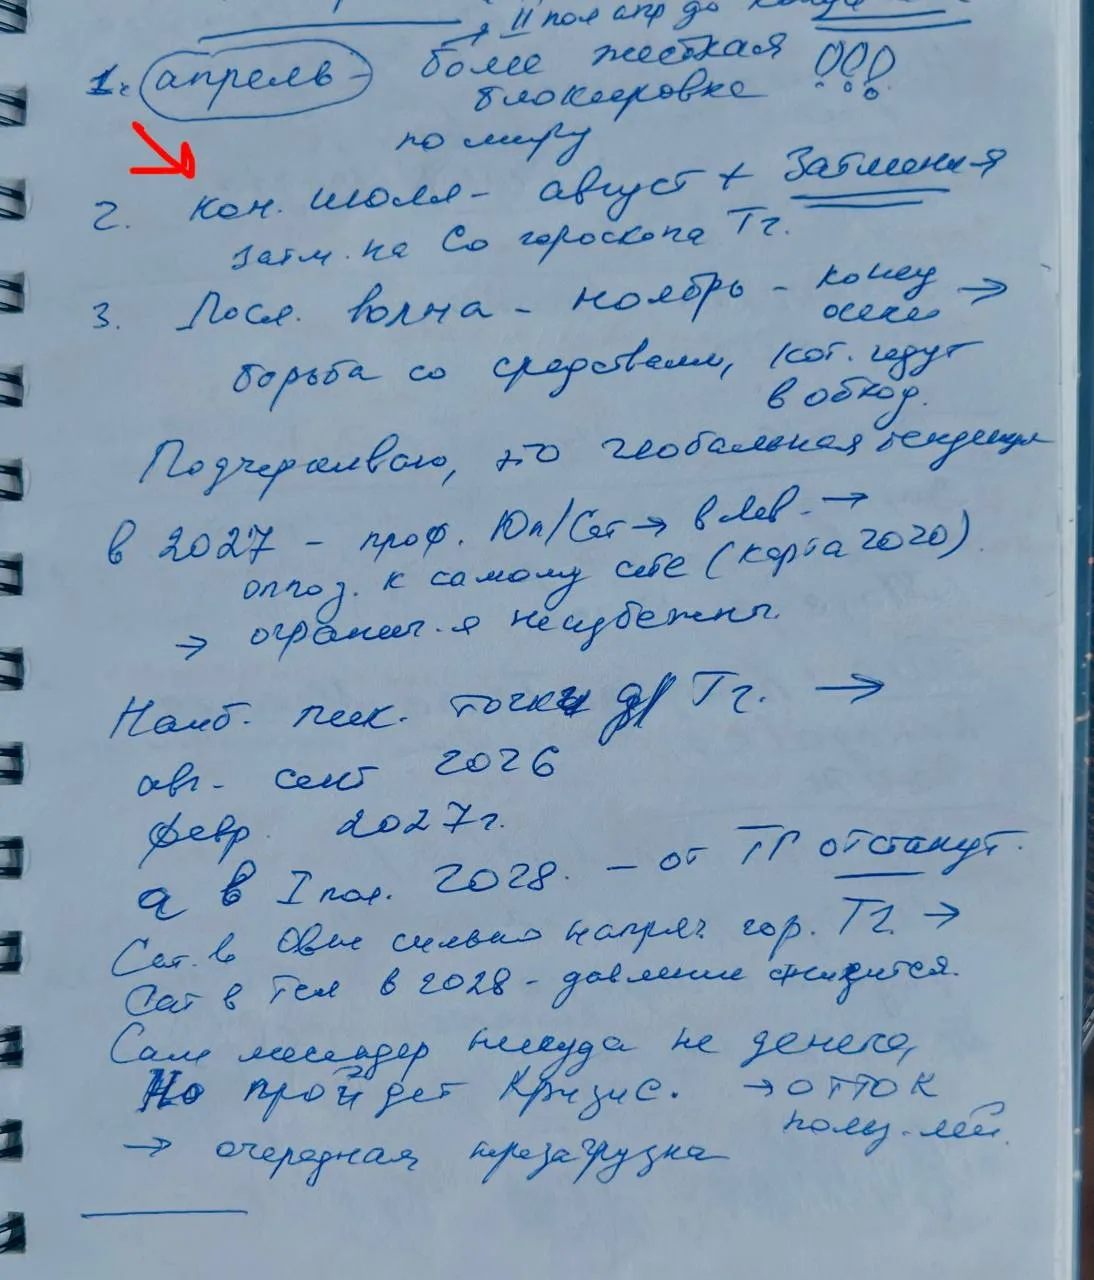 II пол апр до конца
1. апрель - более жесткая !!!
блокировка
по миру
2. кон. июля - август + Затмения
затм. на Со гороскопа Тг.
3. Посл. волна - ноябрь - конец →
осени
борьба со средствами, кот. идут
в обход.
Подчеркиваю, это глобальная тенденция
в 2027 - проф. Юп/Сат → в Лев. →
оппоз. к самому себе (карта 2020)
→ огранич-я неизбежны.
Наиб. пик. точки д/ Тг. →
авг - сент 2026
февр. 2027г.
а в I пол. 2028. - от ТГ отстанут.
Сат. в Овне сильно напряг. гор. Тг. →
Сат в Тел в 2028 - давление снизится.
Сам мессендер никуда не денется,
Но пройдет Кризис. → отток
польз-лей.
→ очередная перезагрузка